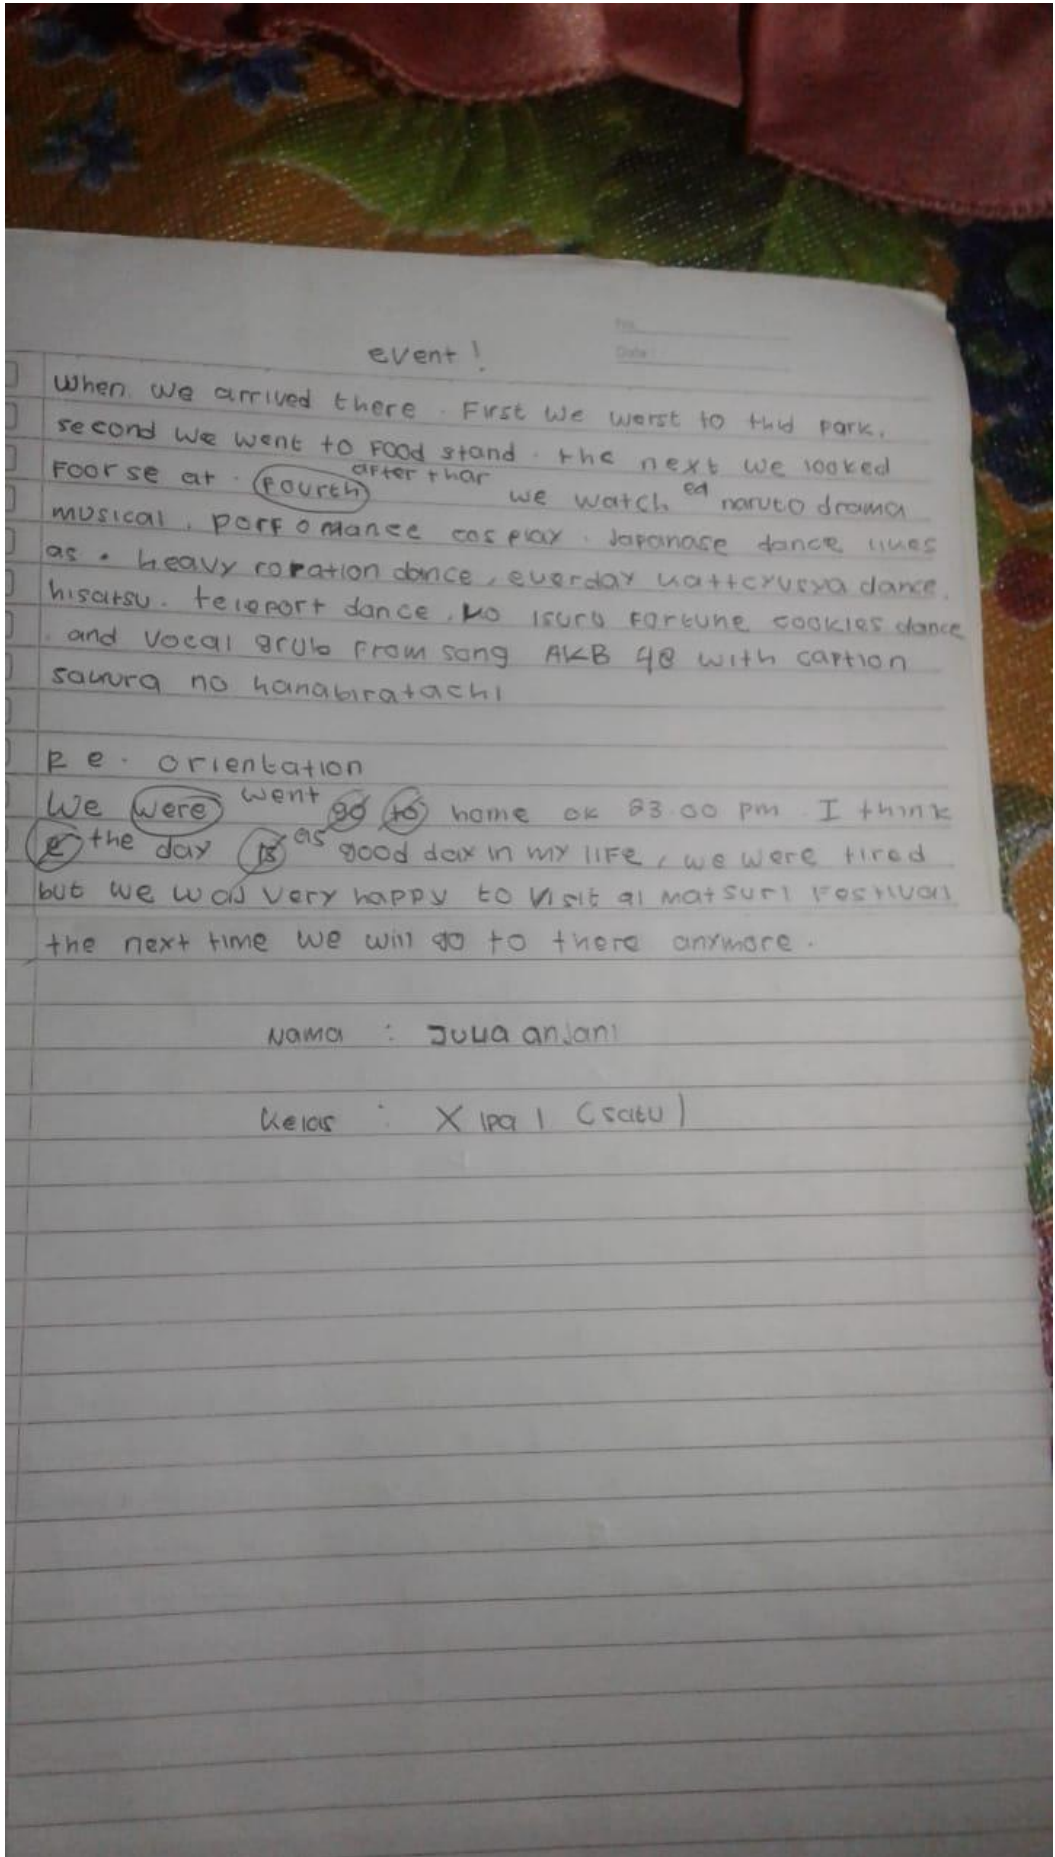 event !
No.
Date :
When we arrived there. First we werst to thd park.
second we went to food stand. the next we looked
Foor se at. Fourth after thar we watch ed naruto drama
musical, porfomance cosplay. Japanase dance lives
as. heavy rotation dance, everday kattcyusya dance.
hisatsu. teleport dance, ko isuru fortune cookies dance
and vocal grub from song AKB 48 with caption
sakura no hanabiratachi
Re. orientation
We were went go to home 23.00 pm. I think
the day is as good dax in my life, we were tired
but we was very happy to visit ai matsuri Festival
the next time we will go to there anymore.
Nama : Julia anjani
Kelas : X ipa 1 (satu)